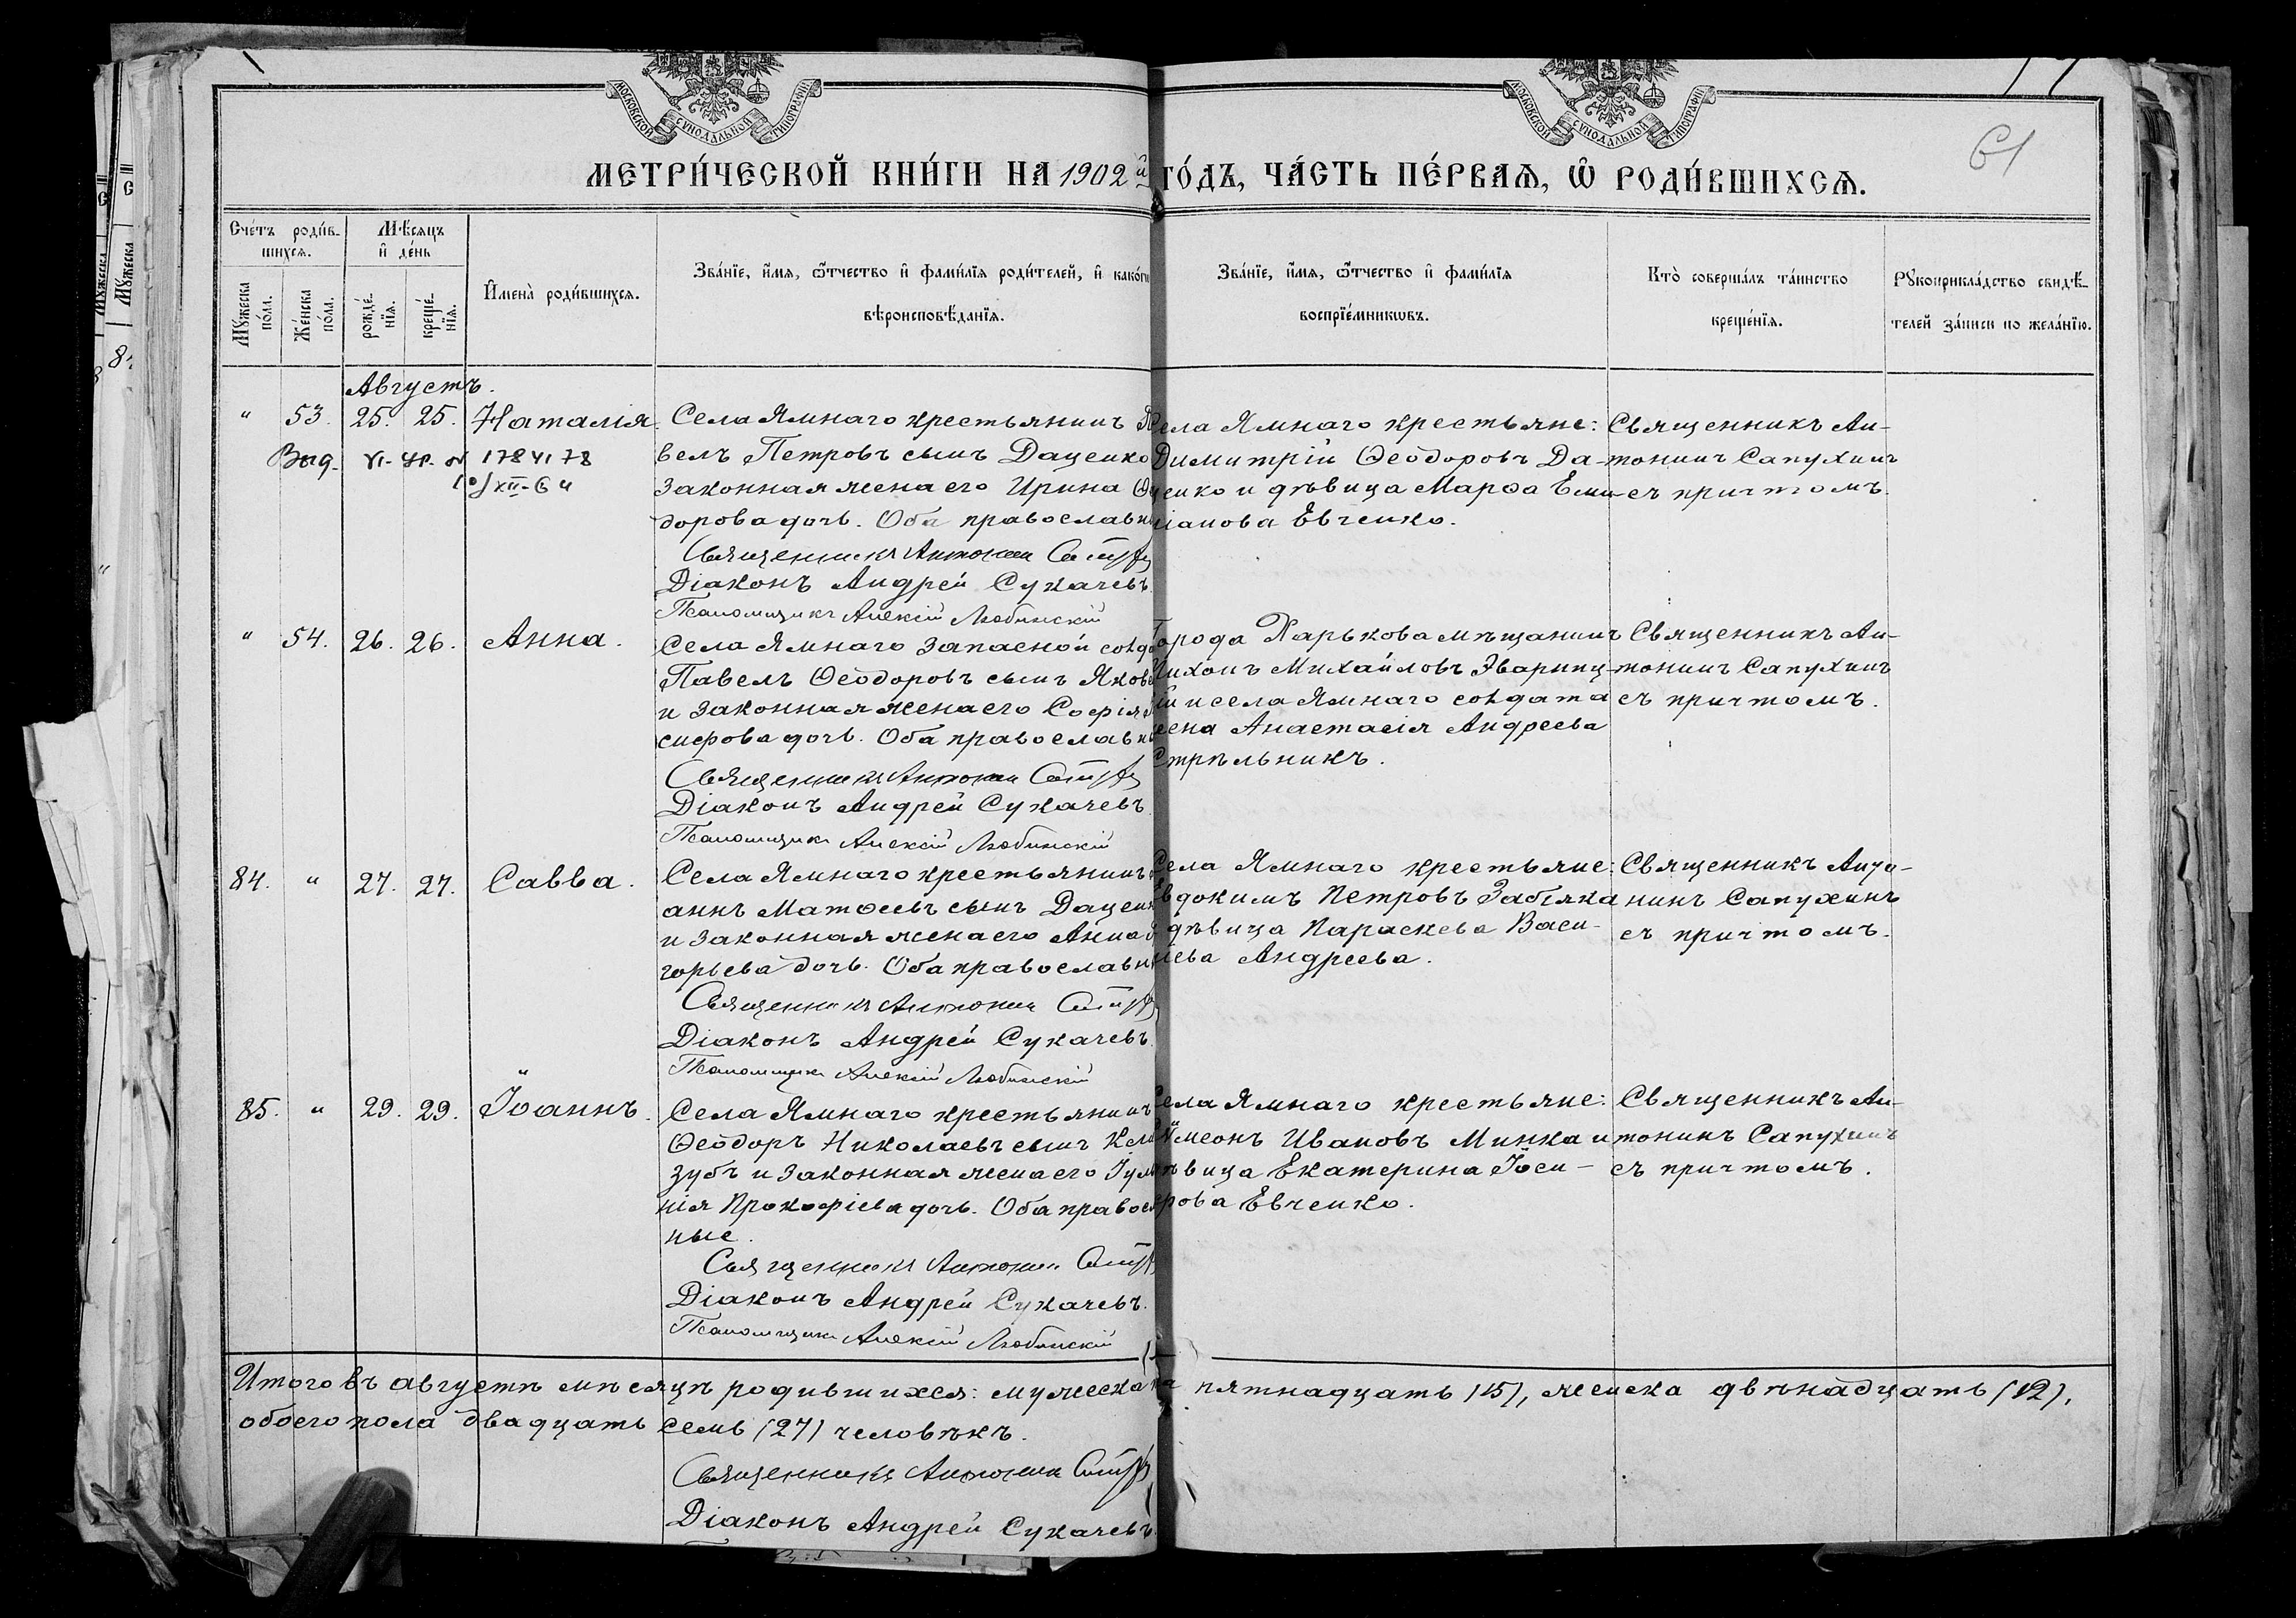 МОСКОВСКОЙ СУНОДАЛЬНОЙ ТИПОГРАФІИ
МОСКОВСКОЙ СУНОДАЛЬНОЙ ТИПОГРАФІИ
61
МЕТРИ́ЧЕСКОЙ КНИ́ГИ НА 1902 й
ГО́ДЪ, ЧА́СТЬ ПЕ́РВАѦ, Ѡ҆ РОДИ́ВШИХСѦ.
Сче́тъ роди́в-
шихсѧ.
Мѣ́сяцъ
и҆ де́нь
Мꙋ́жеска
по́ла.
Же́нска
по́ла.
рожде́-
нїѧ.
креще́-
нїѧ.
И҆мена̀ роди́вшихсѧ.
Зва́нїе, и҆́мѧ, ѻ҆́тчество и҆ фами́лїѧ роди́телей, и҆ како́гѡ
вѣроисповѣ́данїѧ.
Зва́нїе, и҆́мѧ, ѻ҆́тчество и҆ фами́лїѧ
воспрїе́мникѡвъ.
Кто̀ соверша́лъ та́инство
креще́нїѧ.
Рꙋкоприкла́дство свидѣ́-
телей за́писи по жела́нїю.
Августъ.
" 53. 25. 25. Наталія.
Выд.
178478
Села Ямнаго крестьянинъ Па
велъ Петровъ сынъ Даценко
законная жена его Ирина Ѳео
дорова дочь. Оба православны
Священникъ Антонин
Діаконъ Андрей Сукачевъ.
Псаломщикъ Алексій Любинскій
Села Ямнаго крестьяне:
Димитрій Ѳеодоровъ Да-
ценко и дѣвица Марѳа Еми-
ліанова Евченко.
Священникъ Ан-
тонинъ Сапухинъ
съ причтомъ.
" 54. 26. 26. Анна.
Села Ямнаго запасной солда
Павелъ Ѳеодоровъ сынъ Яков
и законная жена его Софія
сифова дочь. Оба православны
Священникъ Антонин
Діаконъ Андрей Сукачевъ.
Псаломщикъ Алексій Любинскій
Города Харькова мѣщанинъ
Тихонъ Михайловъ Эварниц-
ій и села Ямнаго солдата
жена Анастасія Андреева
Стрѣльникъ.
Священникъ Ан-
тонинъ Сапухинъ
съ причтомъ.
84. " 27. 27. Савва.
Села Ямнаго крестьянинъ
аннъ Матѳеевъ сынъ Даценк
и законная жена его Анна
горьева дочь. Оба православн
Священникъ Антонин
Діаконъ Андрей Сукачевъ.
Псаломщикъ Алексій Любинскій
Села Ямнаго крестьяне:
Евдокимъ Петровъ Забіяка
дѣвица Параскева Васи-
льева Андреева.
Священникъ Анто-
нинъ Сапухинъ
съ причтомъ.
85. " 29. 29. Іоаннъ.
Села Ямнаго крестьянинъ
Ѳеодоръ Николаевъ сынъ
зубъ и законная жена его Іулі
нія Прокофіева дочь. Оба правосл
ные.
Священникъ Антонин
Діаконъ Андрей Сукачевъ.
Псаломщикъ Алексій Любинскій
Села Ямнаго крестьяне:
Сѵмеонъ Ивановъ Минка и
дѣвица Екатерина Іоси-
фова Евченко.
Священникъ Ан-
тонинъ Сапухинъ
съ причтомъ.
Итого въ августѣ мѣсяцѣ родившихся: мужеска пятнадцать (15), женска двѣнадцать (12),
обоего пола двадцать семь (27) человѣкъ.
Священникъ Антонин
Діаконъ Андрей Сукачевъ